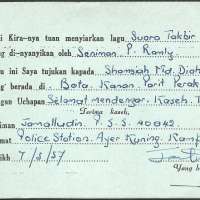 i Kira-nya tuan menyiarkan lagu Suara Takbir
g di-nyanyikan oleh Seniman P. Ramly
u ini Saya tujukan kapada Shamsiah Md. Diah
g berada di Bota Kanan. Parit Perak
gan Uchapan Selamat mendengar. Kaseh.
Terima kaseh,
iman Jamalludin. P.S.S. 40042.
mat Police Station. Ayer Kuning. Kamp
ikh 7/3/57
Yang b